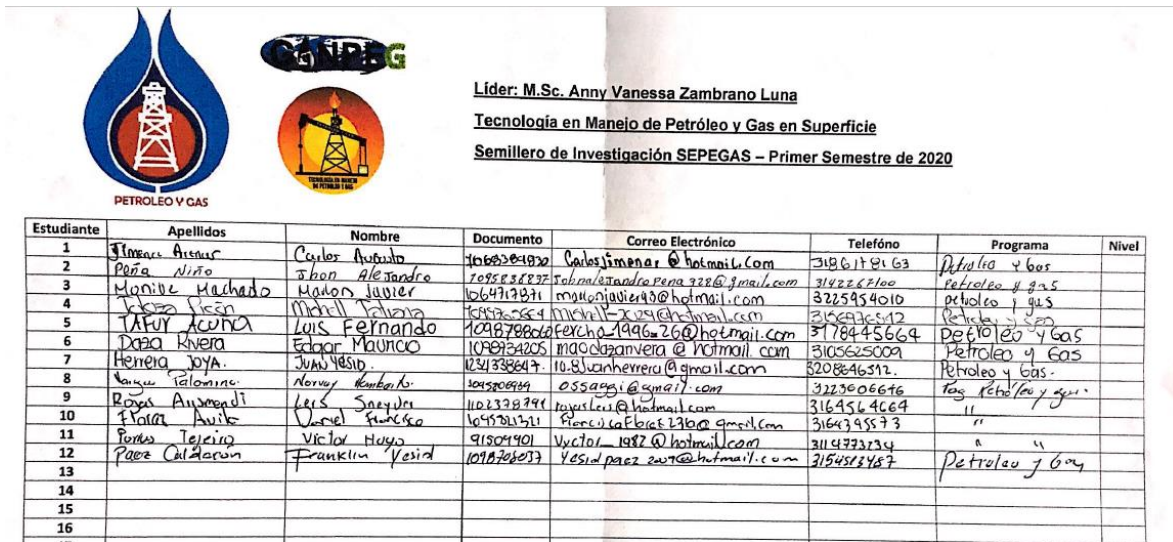 CANPEG
Líder: M.Sc. Anny Vanessa Zambrano Luna
Tecnología en Manejo de Petróleo y Gas en Superficie
Semillero de Investigación SEPEGAS – Primer Semestre de 2020
TECNOLOGÍA EN MANEJO
DE PETROLEO Y GAS
PETROLEO Y GAS
Estudiante Apellidos Nombre Documento Correo Electrónico Telefóno Programa Nivel
1 Jimenez Arenas Carlos Augusto CarlosJimenar@hotmail.com Petroleo y Gas
2 Peña Niño Jhon Alejandro 1095835897 Johnalejandropena928@gmail.com 3142267100 Petroleo y gas
3 Monive Machado Marlon Javier 1064717871 marlonjavier93@hotmail.com 3225954010 petroleo y gas
4 Michell Tatiana Petroleo y Gas
5 TAFUR Acuña Luis Fernando 1098788060 fercho_1996_26@hotmail.com 3178445664 Petroleo y Gas
6 Daza Rivera Edgar Mauricio 1098734205 maodazarivera@hotmail.com 3105625009 Petroleo y Gas
7 Herrera JOYA. JUAN YESID. 1234338647. 10.8Juanherrera@gmail.com 3208646512. Petroleo y Gas.
8 Palomino. Norvey Humberto. ossaggi@gmail.com 3223606646 Petróleo y
9 Rojas 1102378791 rojasleis@hotmail.com 3164564664 "
10 Florez Avila Daniel Francisco 1095821321 3164395573 "
11 Porras Tejeiro Victor Hugo 91509901 Vyctor_1982@hotmail.com 3114773734 " "
12 Paez Calderón Franklin Yesid 1098708037 Yesidpaez2009@hotmail.com 3154513487 Petroleo y Gas
13
14
15
16